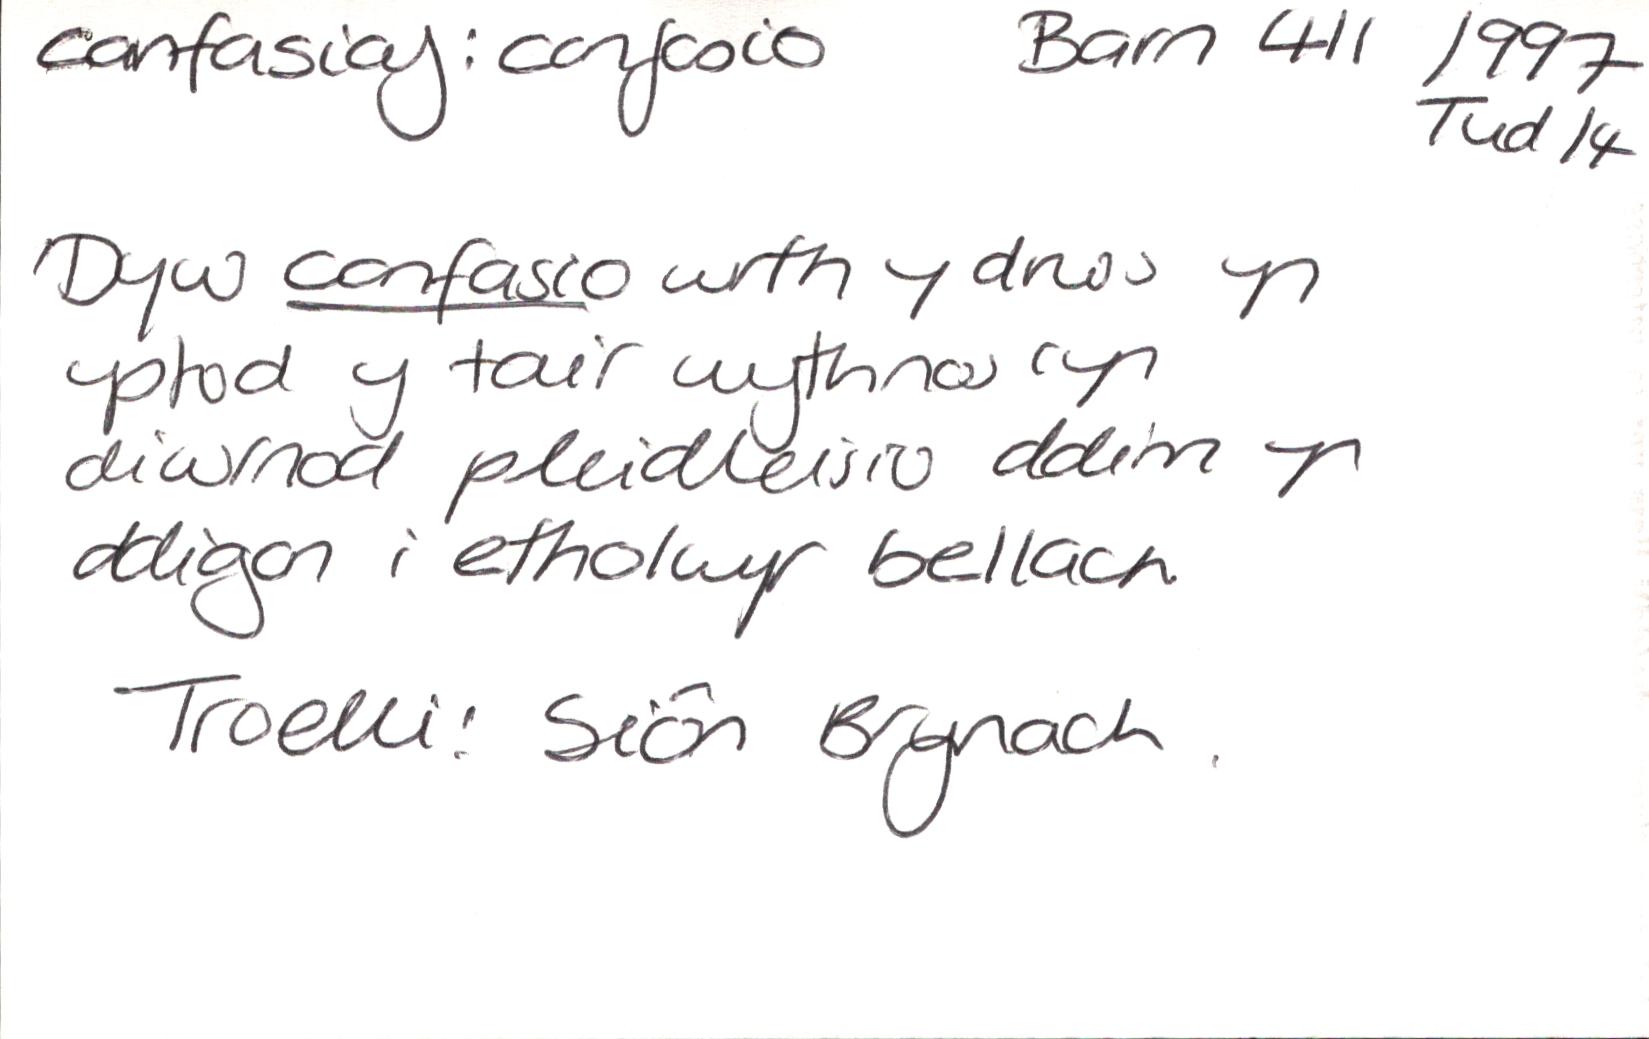 canfasiaf: canfasio Barn 411 1997
Tud 14
Dyw canfasio wrth y drws yn
ystod y tair wythnos cyn
diwrnod pleidleisio ddim yn
ddigon i etholwyr bellach.
Troelli: Siôn Brynach.